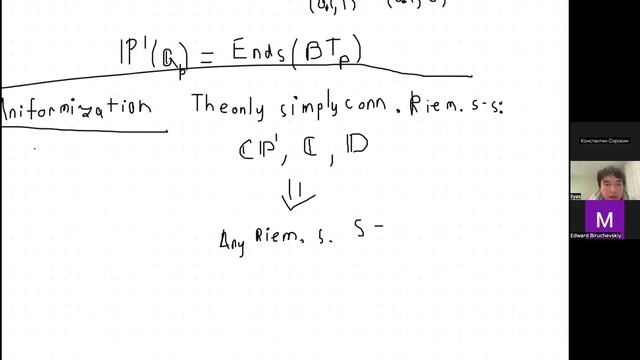 IP'(Q_p) = Ends(BT_p)
Uniformization The only simply conn. Riem. s-s:
ℂP', ℂ, 𝔻
⇓
Any Riem. s. S -
Константин Сорокин
M
Edward Biruchevskiy